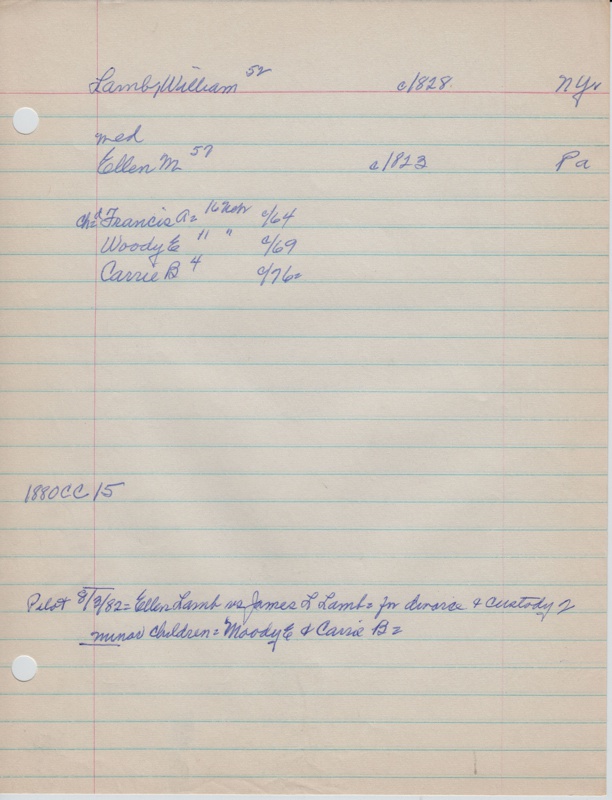 Lamb, William 52 c/1828 NY
med
Ellen M 57 c/1823 Pa
ch= Francis A= 16 c/64
Woody E 11 " c/69
Carrie B 4 c/76=
1880CC 15
Pilot 8/3/82= Ellen Lamb vs James L Lamb= for divorce & custody of
minor children= Moody E & Carrie B=